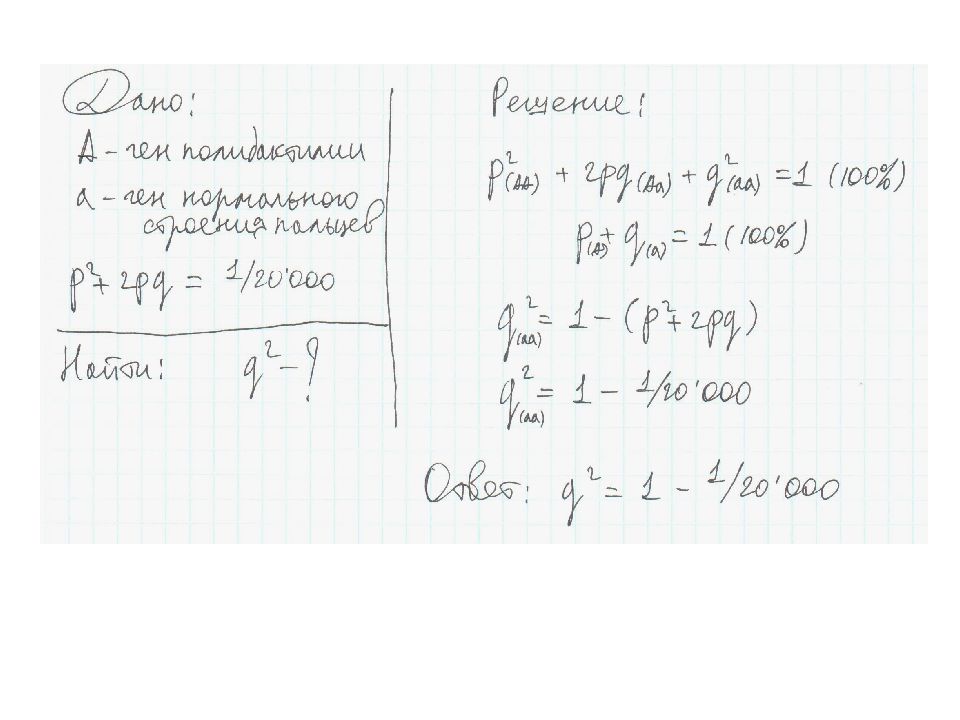 Дано:
А - ген полидактилии
а - ген нормального
строения пальцев
p²+ 2pq = 1/20'000
Найти: q² - ?
Решение:
p²(АА) + 2pq(Аа) + q²(аа) = 1 (100%)
p(А)+ q(а) = 1 (100%)
q²(аа) = 1 - (p²+ 2pq)
q²(аа) = 1 - 1/20'000
Ответ: q² = 1 - 1/20'000